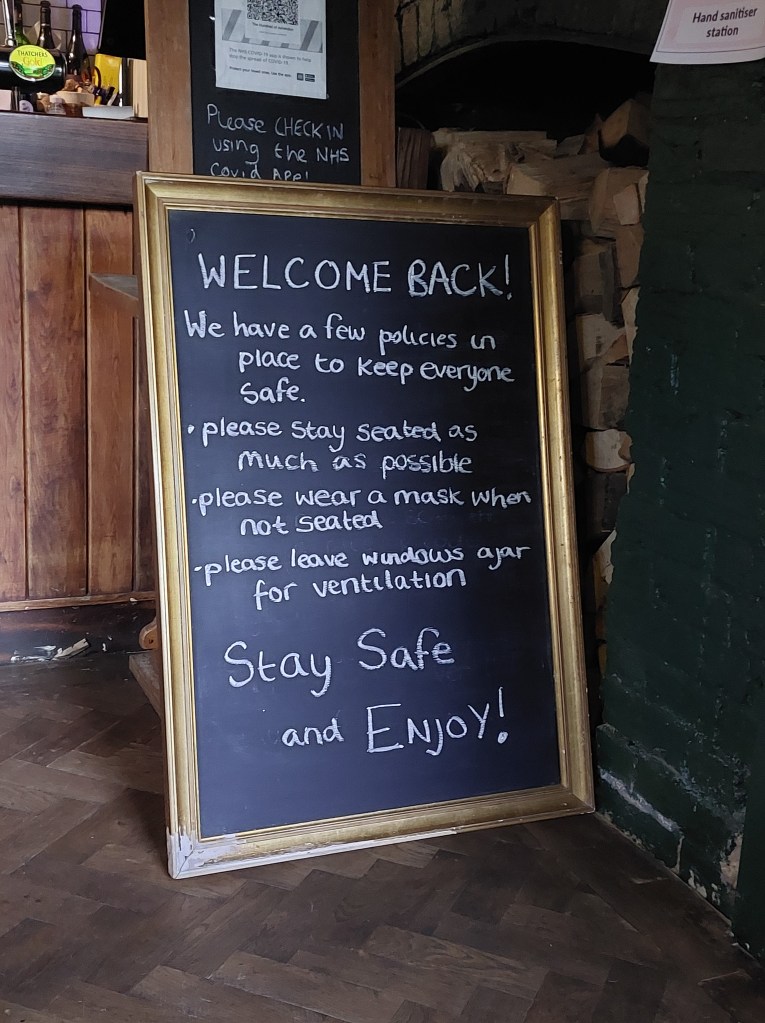 Hand sanitiser
station
THATCHERS
Gold
The NHS COVID-19 app is proven to help
Please CHECK IN
using the NHS
Covid App!
WELCOME BACK!
We have a few policies in
place to keep everyone
safe.
• please stay seated as
much as possible
• please wear a mask when
not seated
• please leave windows ajar
for ventilation
Stay Safe
and ENJOY!